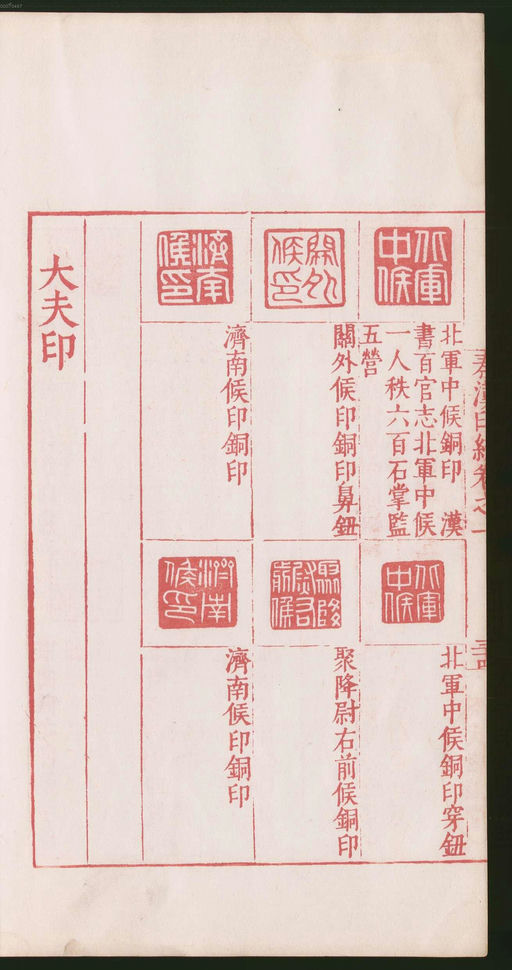 北軍中候
北軍中候銅印　漢
書百官志北軍中候
一人秩六百石掌監
五營
關外候印
關外候印銅印鼻鈕
濟南候印
濟南候印銅印
北軍中候
北軍中候銅印穿鈕
聚降尉右前候
聚降尉右前候銅印
濟南候印
濟南候印銅印
大夫印